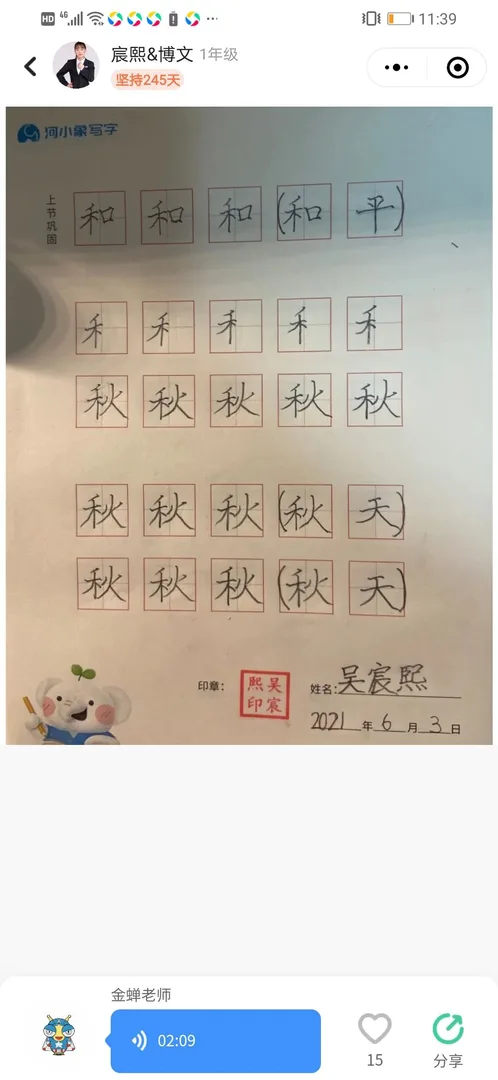 HD 4G 11:39
宸熙&博文 1年级
坚持245天
河小象写字
上节巩固 和 和 和 (和 平)
禾 禾 禾 禾 禾
秋 秋 秋 秋 秋
秋 秋 秋 (秋 天)
秋 秋 秋 (秋 天)
印章: 熙吴印宸 姓名:吴宸熙
2021 年 6 月 3 日
金蝉老师
02:09
15 分享